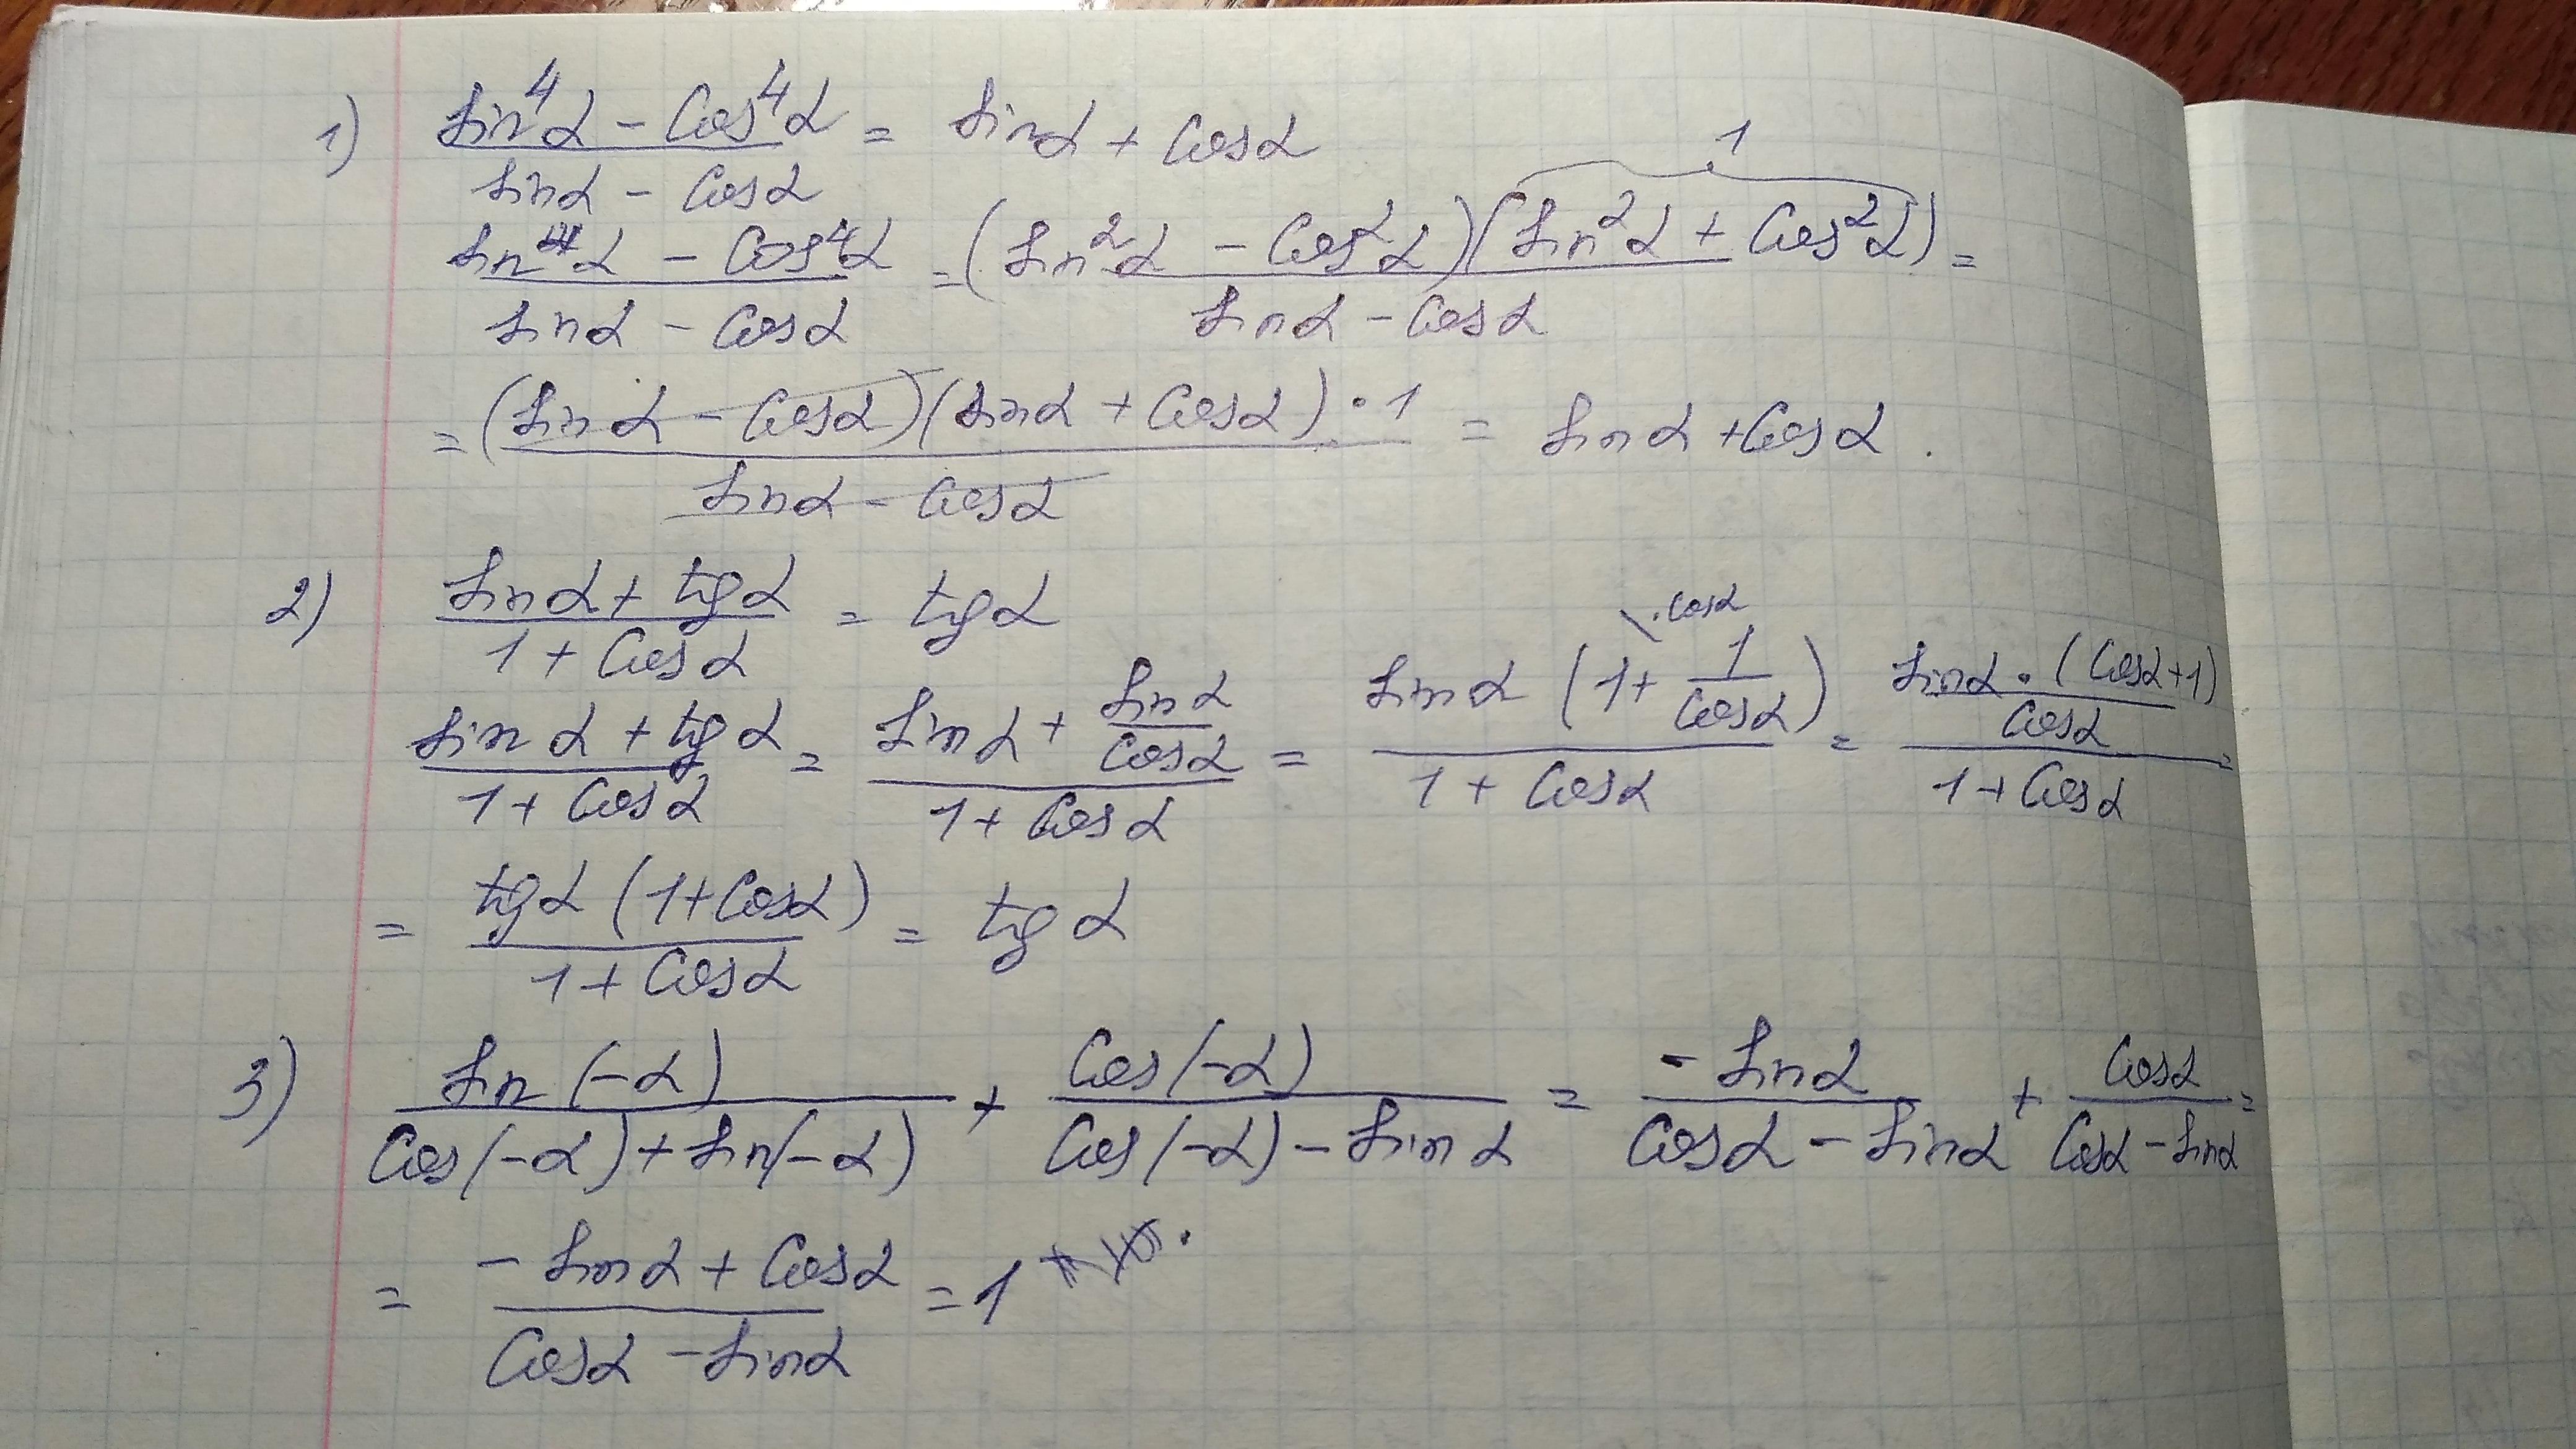 1) (sin⁴α − cos⁴α)/(sinα − cosα) = sinα + cosα
1
(sin⁴α − cos⁴α)/(sinα − cosα) = ((sin²α − cos²α)(sin²α + cos²α))/(sinα − cosα) =
= ((sinα − cosα)(sinα + cosα) · 1)/(sinα − cosα) = sinα + cosα.
2) (sinα + tgα)/(1 + cosα) = tgα
\·cosα
(sinα + tgα)/(1 + cosα) = (sinα + sinα/cosα)/(1 + cosα) = (sinα (1 + 1/cosα))/(1 + cosα) = (sinα · (cosα + 1)/cosα)/(1 + cosα) =
= (tgα (1 + cosα))/(1 + cosα) = tgα
3) sin(−α)/(cos(−α) + sin(−α)) + cos(−α)/(cos(−α) − sinα) = −sinα/(cosα − sinα) + cosα/(cosα − sinα) =
= (−sinα + cosα)/(cosα − sinα) = 1.